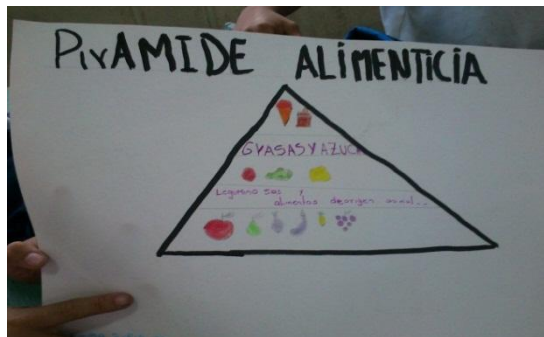 PirAMIDE ALiMENTiCiA
GYASASYAZUCA
Legumino sas y
alimentos de origen animal..